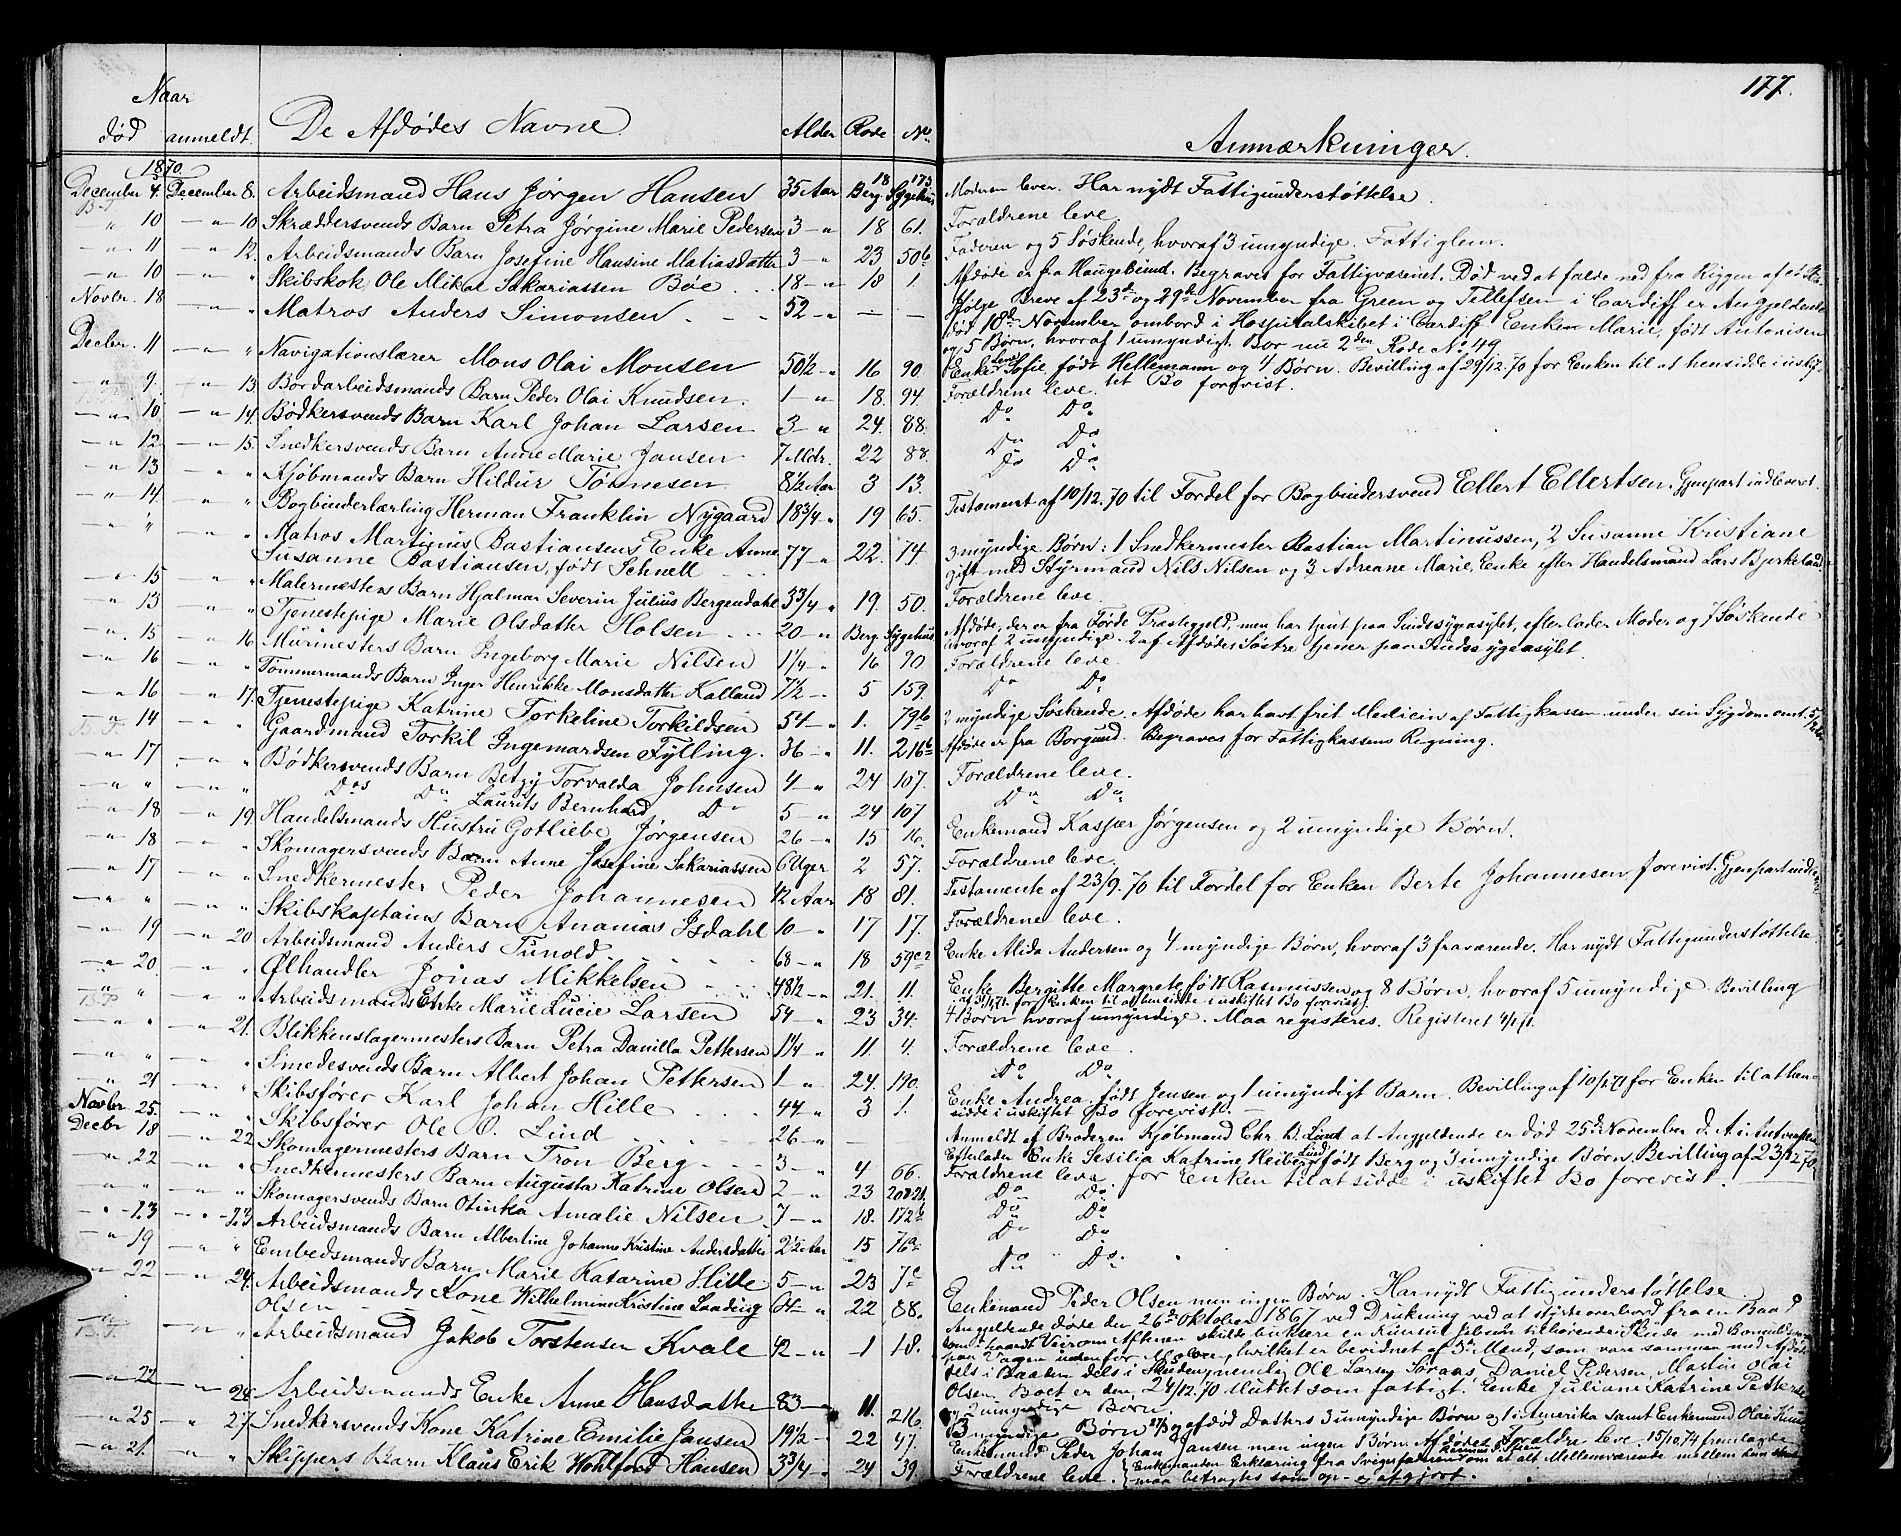 177.
Naar
død anmeldt. De Afdødes Navne. Alder Rode No Anmærkninger.
1870.
December 4. December 8. Arbeidsmand Hans Jørgen Hansen 35 Aar 18 173 Berg. Sygehus Moderen lever. Har nydt Fattigunderstøttelse.
" 10 — " — 10 Skræddersvends Barn Petra Jørgine Marie Pedersen 3 — " 18 61. Forældrene leve.
— " — 11 — " — 12. Arbeidsmands Barn Josefine Hansine Matiasdatter 3 — " 23 50b Faderen og 5 Søskende, hvoraf 3 umyndige. Fattiglem.
— " — 10 — " — " Skibskok Ole Mikal Sakariassen Bøe 18 — " 18 1. Afdøde er fra Haugesund. Begraves for Fattigvæsenet. Død ved at falde ned fra Riggen af
Novbr. 18 — " — " Matros Anders Simonsen 52 — " — — Ifølge Breve af 23de og 29de November fra Green og Tellefsen i Cardiff er Angjeldende
død 18de November ombord i Hospitalskibet i Cardiff. Enken Marie, født Antonisen
og 5 Børn, hvoraf 1 umyndigt. Bor nu 2den Rode No 49
Decbr. 11 — " — " Navigationslærer Mons Olai Monsen 50 1/2 — " 16 90. Enke Sofie, født Hellemann og 4 Børn. Bevilling af 29/12.70 for Enken til at hensidde i uskif-
tet Bo forevist.
— " — 9. — " — 13. Bordarbeidsmands Barn Peder Olai Knudsen. 1 — " 18. 94. Forældrene leve.
— " — 10 — " — 14. Bødkersvends Barn Karl Johan Larsen 3 — " 24. 88. Do Do
— " — 12 — " — 15. Snedkersvends Barn Anne Marie Jansen 7 Mdr. 22 88. Do Do
— " — 13 — " — " Kjøbmands Barn Hildur Tønnesen 8 1/2 Aar 3 13. Do Do
— " — 14. — " — " Bogbinderlærling Herman Franklin Nygaard 18 3/4 — " 19 65. Testament af 10/12.70 til Fordel for Bogbindersvend Ellert Ellertsen. Gjenpart indleveret.
— " — " — " — " Matros Martinus Bastiansens Enke Anne
Susanne Bastiansen, født Schnell 77 — " 22. 14. 3 myndige Børn: 1 Snedkermester Bastian Martinussen, 2 Susanne Kristiane
gift med Styrmand Nils Nilsen og 3 Adreane Marie, Enke efter Handelsmand Lars Bjerkeland
— " — 15 — " — " Malermesters Barn Hjalmar Severin Julius Bergendahl 3 3/4 — " 19. 50. Forældrene leve.
— " — 13 — " — " Tjenestepige Marie Olsdatter Holsen 20 — " Berg. Sygehus Afdøde, der er fra Førde Præstegjeld, men har tjent paa Sindssygeasylet, efterlader Moder og 7 Søskende
hvoraf 2 umyndige. 2 af Afdødes Søstre tjener paa Sindssygeasylet.
— " — 15 — " — 16. Murmesters Barn Ingeborg Marie Nilsen 1 1/4 — " 16 90 Forældrene leve.
— " — 16 — " — " Tømmermands Barn Inger Henrikke Monsdatter Kalland 7 1/2 — " 5 159. Do Do
— " — 16 — " — 17. Tjenestepige Katrine Torkeline Torkildsen 54 — " 1. 79b 2 myndige Søskende. Afdøde har havt frit Medicin af Fattigkassen under sin Sygdom
— " — 14 — " — " Gaardmand Torkil Ingemardsen Fylling. 36 — " 11. 216b Afdøde er fra Borgund. Begraves for Fattigkassens Regning.
— " — 17 — " — " Bødkersvends Barn Betzy Torvalda Johnsen 4 — " 24 107. Forældrene leve.
— " — " — " — " Dos Do Laurits Bernhard Do 5 — " 24 107 Do Do
— " — 18 — " — 19. Handelsmands Hustru Gotliebe Jørgensen 26 — " 15 16. Enkemand Kasper Jørgensen og 2 umyndige Børn.
— " — 18 — " — " Skomagersvends Barn Anne Josefine Sakariassen 6 Uger 2 57. Forældrene leve.
— " — 17 — " — " Snedkermester Peder Johannesen 42 Aar 18 81. Testamente af 23/9.70 til Fordel for Enken Berte Johannesen forevist. Gjenpart
— " — " — " — " Skibskaptains Barn Ananias Isdahl 10 — " 17 17. Forældrene leve.
— " — 19 — " — 20. Arbeidsmand Anders Tunold. 68 — " 18 59c2 Enke Alida Andersen og 4 myndige Børn, hvoraf 3 fraværende. Har nydt Fattigunderstøttelse
— " — 20. — " — " Ølhandler Jonas Mikkelsen 48 1/2 — " 21. 11. Enke Bergitte Margrete født Rasmussen og 8 Børn, hvoraf 5 umyndige. Bevilling
for Enken til at hensidde i uskiftet Bo forevist.
" " — " — " Arbeidsmands Enke Marie Lucie Larsen 54 — " 23 34. 4 Børn hvoraf umyndige. Maa registeres. Registeret 4/1 71.
" " — " — 21. Blikkenslagermesters Barn Petra Danilla Pettersen 1 1/4 — " 11. 4. Forældrene leve.
" " — " — " Smedesvends Barn Albert Johan Pettersen 1 — " 24. 190. Do Do
— " — 21 — " — " Skibsfører Karl Johan Hille 44 — " 3 1. Enke Andrea, født Jensen og 1 umyndigt Barn. Bevilling af 10/1 71 for Enken til at hen-
sidde i uskiftet Bo forevist.
Novbr 25. — " — " Skibsfører Ole O. Lind 26 — " — — Anmeldt af Broderen Kjøbmand Chr. B. Lind at Angjeldende er død 25de November d. A. i Antverpen
Efterlader Enke Sesilia Katrine Heiberg Lind født Berg og 3 umyndige Børn. Bevilling af 23/12 70
for Enken til at sidde i uskiftet Bo forevist.
Decbr 18 — " — 22 Skomagermesters Barn Tron Berg 3 — " 4 66. Forældrene leve.
— " — 22 — " — " Snedkermesters Barn Augusta Katrine Olsen 2 — " 23 20 Do Do
— " — " — " — " Skomagersvends Barn Otinka Amalie Nilsen 7 — " 18. 172b Do Do
— " — 23 — " — 23. Arbeidsmands Barn Albertine Johanne Kristine Andersdatter 2 1/2 Aar 15 76a Do Do
— " — 19 — " — " Embedsmands Barn Marie Katarine Hille 5 — " 23 7c Do Do
— " — 22 — " — 24. Arbeidsmands Kone Wilhelmine Kristine Landing
Olsen 64 — " 22 88. Enkemand Peder Olsen men ingen Børn. Har nydt Fattigunderstøttelse.
— " — " Arbeidsmand Jakob Torstensen Kvale 42 — " 1 18. Angjeldende døde den 26de Oktober 1867 ved Drukning ved at styrte overbord fra en Baad
Olsen. Boet er den 24/12.70 sluttet som fattigt. Enke Juliane Katrine
og 2 umyndige Børn.
— " — 22 — " — 24. Arbeidsmands Enke Anne Hansdatter 83 — " 11. 216. Børn og afdød Datters 3 umyndige Børn og 1 i Amerika samt Enkemand Olai
— " — 25 — " — 27. Snedkersvends Kone Katrine Emilie Jansen 19 1/2 — " 22 47. Enkemand Peder Johan Jansen men ingen Børn. Afdødes Forældre leve. 15/10.74 fremlagde
Enkemanden Erklæring fra Svigerfaderen om at alt Mellemværende mellem ham
maa betragtes som op- og afgjort.
— " — 21. — " — " Skippers Barn Klaus Erik Wohlford Hansen 3 3/4 — " 24 39. Forældrene leve.